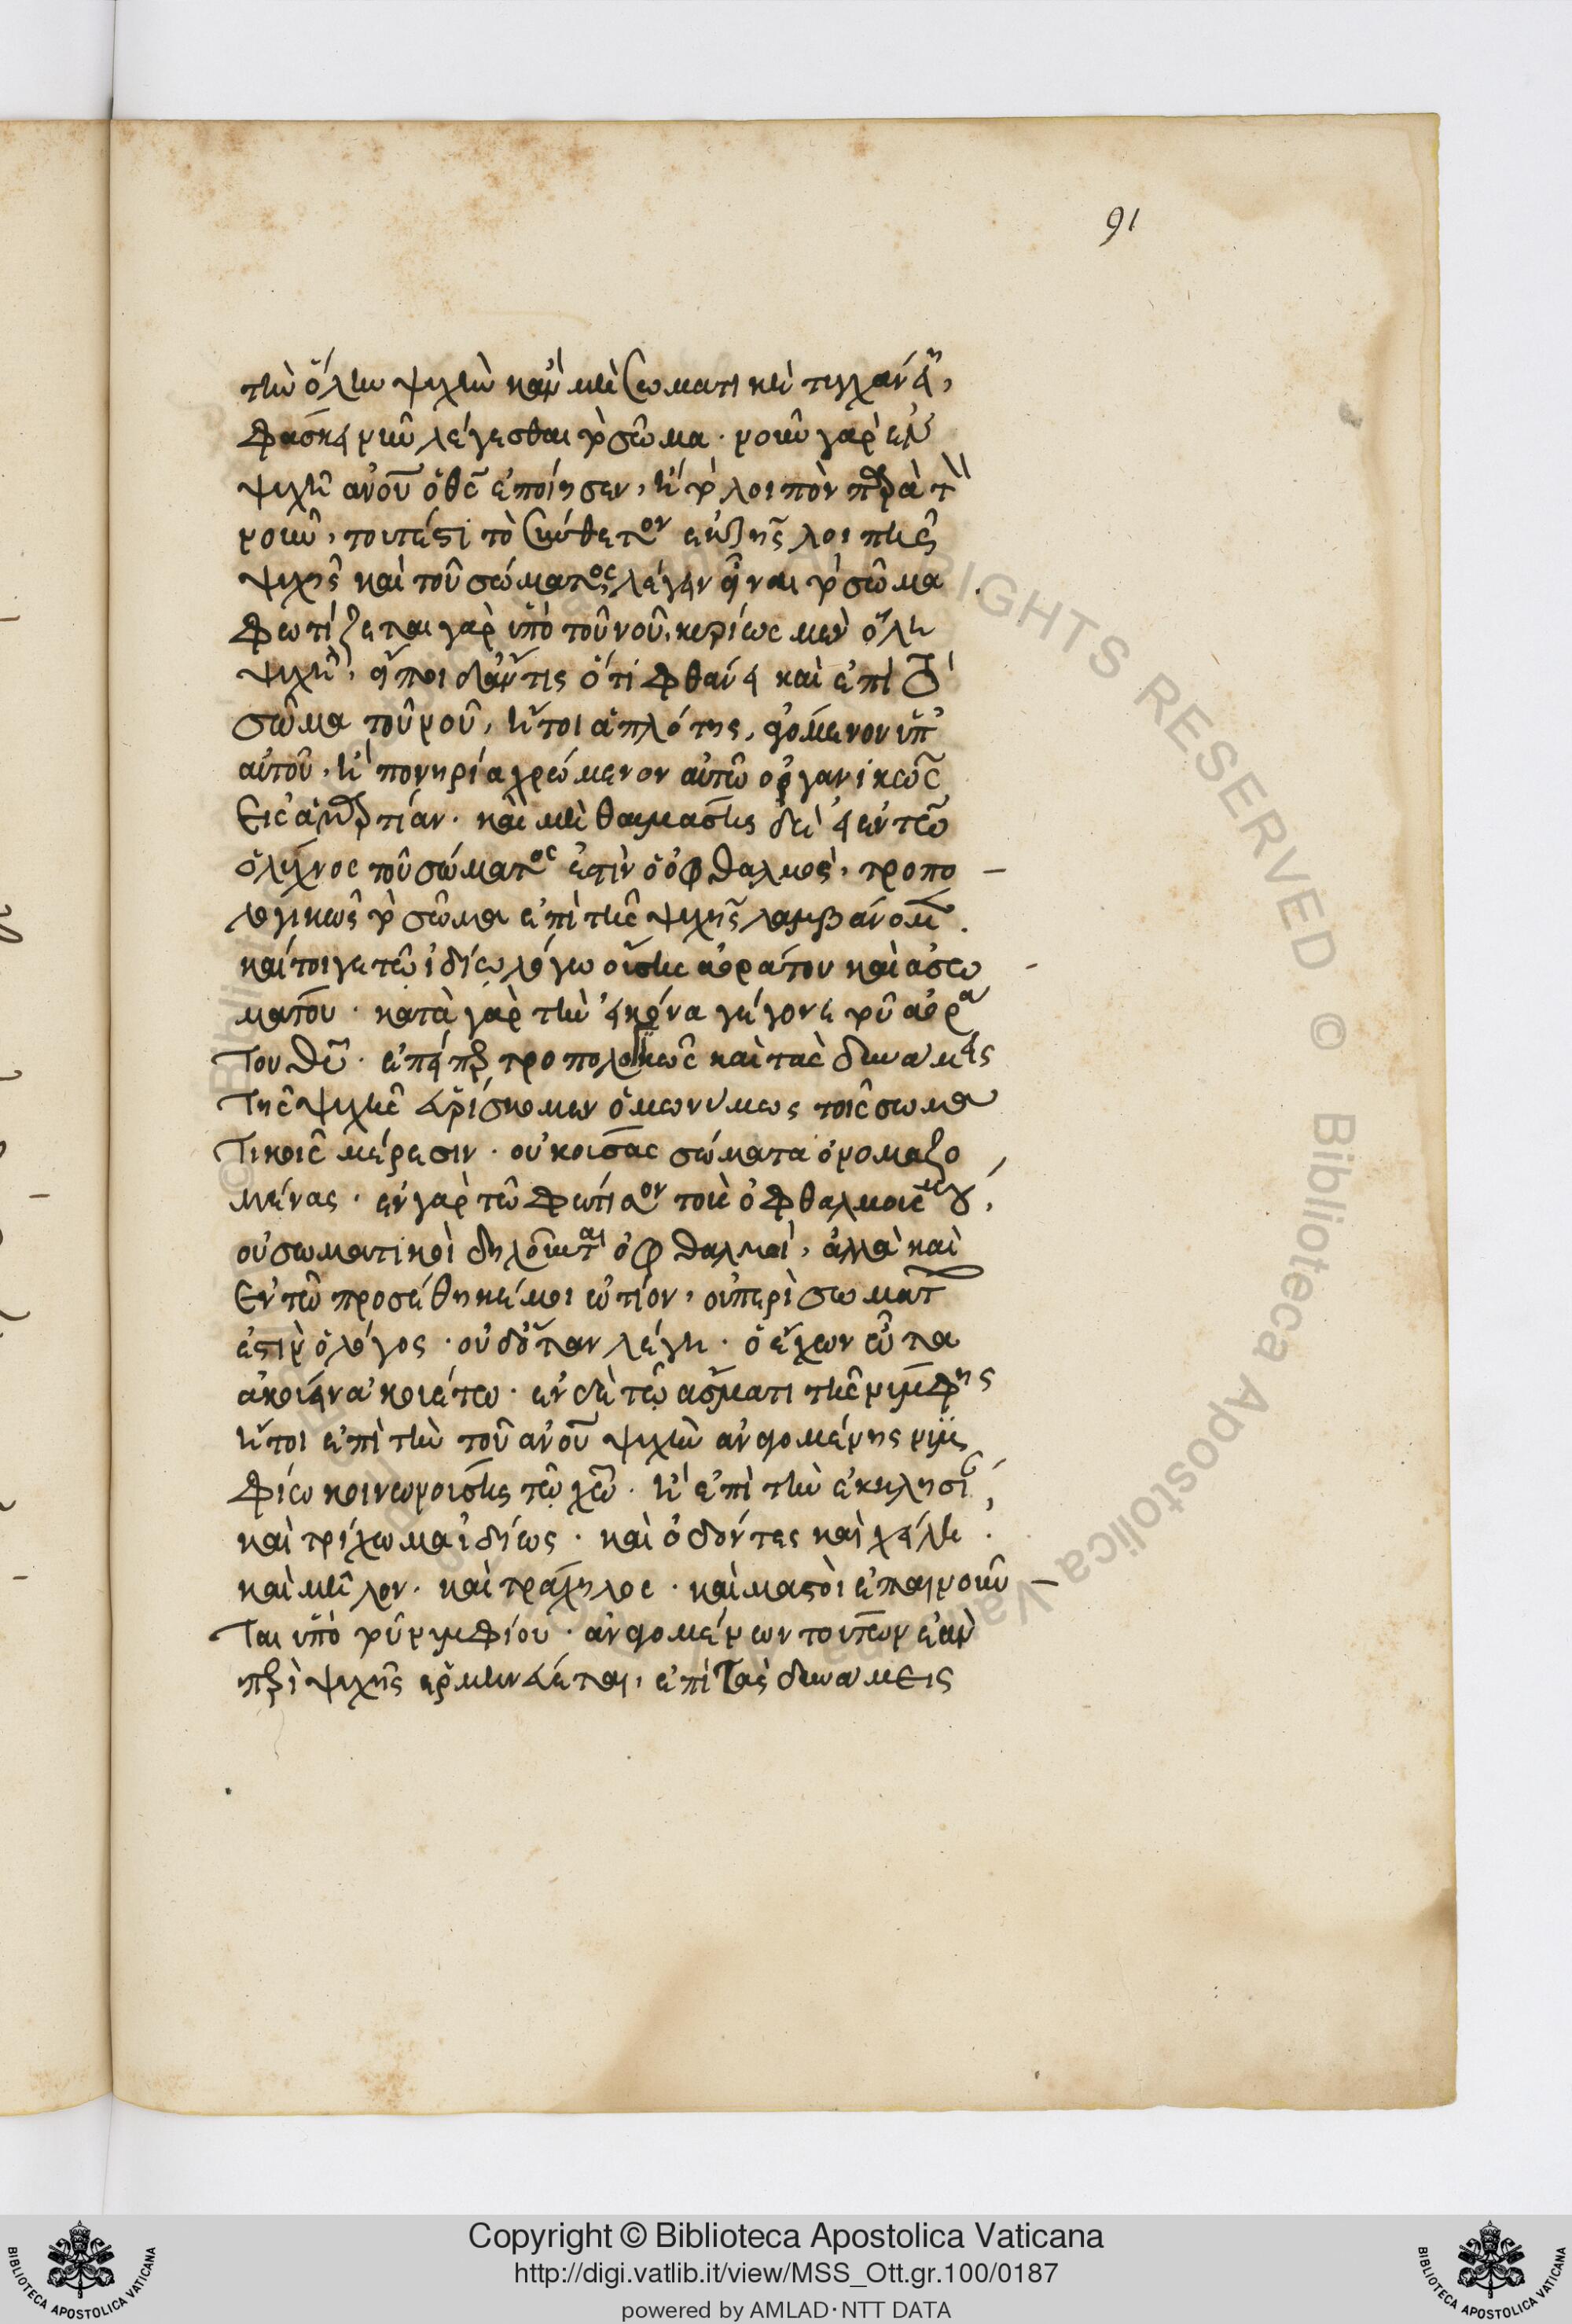 91
τὴν ὅλην ψυχὴν κἂν μὴ σωματικὴ τυγχάνει,
φασκει νῦν λέγεσθαι τὸ σῶμα. νοῦν γὰρ
ψυχῆ ἀνοῦ ὁ θς ἐποίησεν, ἢ τὸ λοιπὸν παρὰ τὸν
νοῦν, τουτέστι τὸ σύνθετον ἐκ τῆς λοιπῆς
ψυχῆς καὶ τοῦ σώματος λέγειν εἶναι τὸ σῶμα.
φωτίζεται γὰρ ὑπὸ τοῦ νοῦ, κυρίως μὲν ὅλη
ψυχὴ, εἴποι δ' ἄν τις ὅτι φθάνει καὶ ἐπὶ τὸ
σῶμα τοῦ νοῦ, ἤτοι ἁπλότης, ἀγόμενον ὑπ'
αὐτοῦ, ἢ πονηρία χρώμενον αὐτῶ ὀργανικῶς
εἰς ἁμαρτίαν. καὶ μὴ θαυμάσης δὲ εἰ ἐν τῶ
ὁ λύχνος τοῦ σώματος ἐστὶν ὁ ὀφθαλμὸς, τροπο
λογικῶς τὸ σῶμα ἐπὶ τῆς ψυχῆς λαμβάνομεν.
καίτοιγε τῶ ἰδίω λόγω οὔσης ἀοράτου καὶ ἀσω
μάτου. κατὰ γὰρ τὴν εἰκόνα γέγονε τοῦ ἀορά
του θῦ. ἐπείπερ τροπολογικῶς καὶ τὰς δυνάμεις
τῆς ψυχῆς εὑρίσκομεν ὁμωνύμως τοῖς σωμα
τικοῖς μέρεσιν. οὐκ οὔσας σώματα ὀνομαζο
μένας. ἐν γὰρ τῶ φώτισον τοὺς ὀφθαλμούς μου,
οὐ σωματικοὶ δηλοῦνται ὀφθαλμοὶ, ἀλλὰ καὶ
ἐν τῶ προσέθηκέ μοι ὠτίον, οὐ περὶ σωματ
ἐστιν ὁ λόγος. οὐδ' ὅταν λέγη. ὁ ἔχων ὦτα
ἀκούειν ἀκουέτω. ἐν δὲ τῶ ᾄσματι τῆς νύμφης
ἤτοι ἐπὶ τὴν τοῦ ἀνοῦ ψυχὴν ἀναγομένης νυμ
φίω κοινωνούσης τῶ χῶ. ἢ ἐπὶ τὴν ἐκκλησί,
καὶ τρίχωμα ἰδίως. καὶ ὀδόντες καὶ χείλη.
καὶ μῆλον. καὶ τράχηλος. καὶ μαστοὶ ἐπαινοῦν
ται ὑπὸ τοῦ νυμφίου. ἀναγομένων τούτων ἐὰν
περὶ ψυχῆς ἑρμηνεύεται, ἐπὶ τὰς δυνάμεις
Copyright © Biblioteca Apostolica Vaticana
http://digi.vatlib.it/view/MSS_Ott.gr.100/0187
powered by AMLAD·NTT DATA